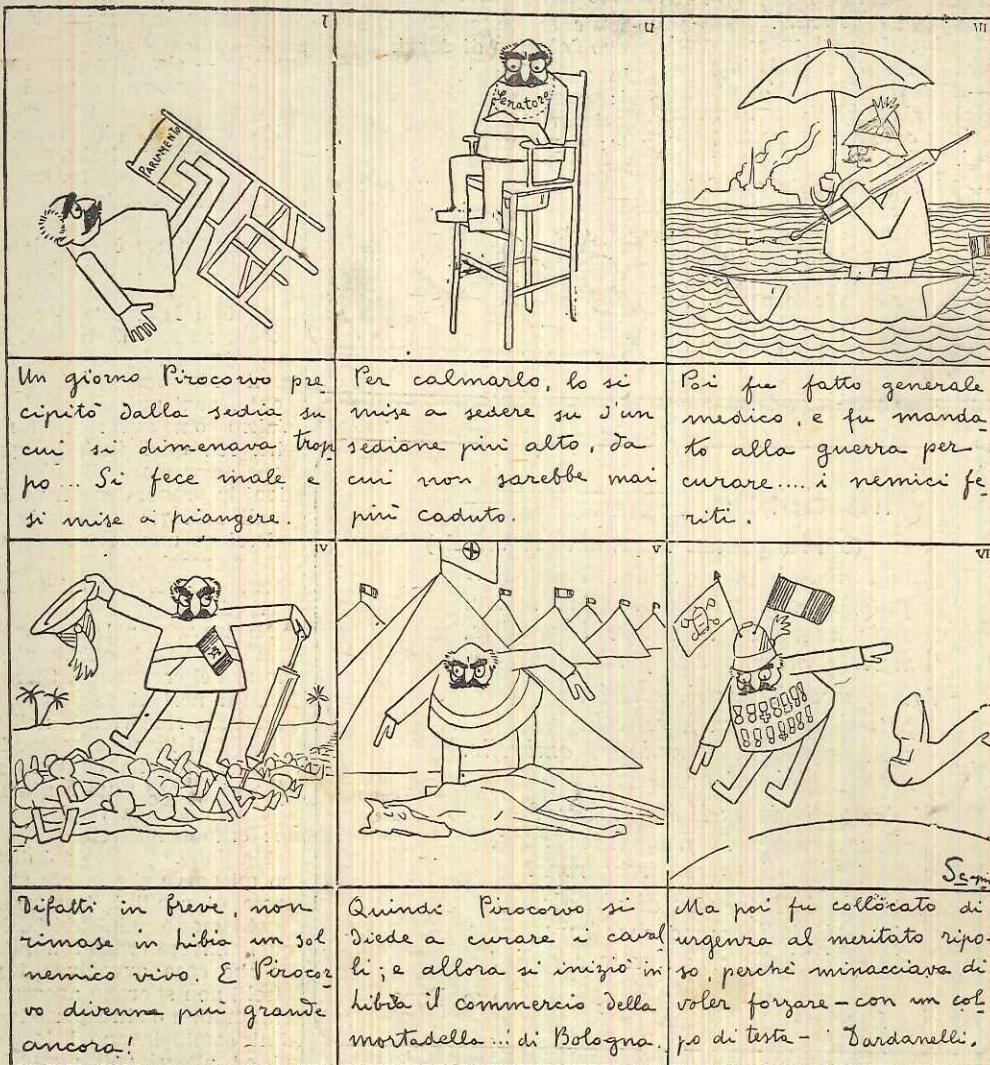 I
PARLAMENTO
Un giorno Pirocorvo pre
cipitò dalla sedia su
cui si dimenava trop
po... Si fece male e
si mise a piangere.
II
Senatore
Per calmarlo, lo si
mise a sedere su d'un
sedione più alto, da
cui non sarebbe mai
più caduto.
III
Poi fu fatto generale
medico, e fu manda-
to alla guerra per
curare.... i nemici fe-
riti.
IV
Difatti in breve, non
rimase in Libia un sol
nemico vivo. E Pirocor
vo divenne più grande
ancora!
V
Quindi Pirocorvo si
diede a curare i caval
li; e allora si iniziò in
Libia il commercio della
mortadella... di Bologna.
VI
Ma poi fu collocato di
urgenza al meritato ripo-
so, perchè minacciava di
voler forzare – con un col
po di testa – i Dardanelli.